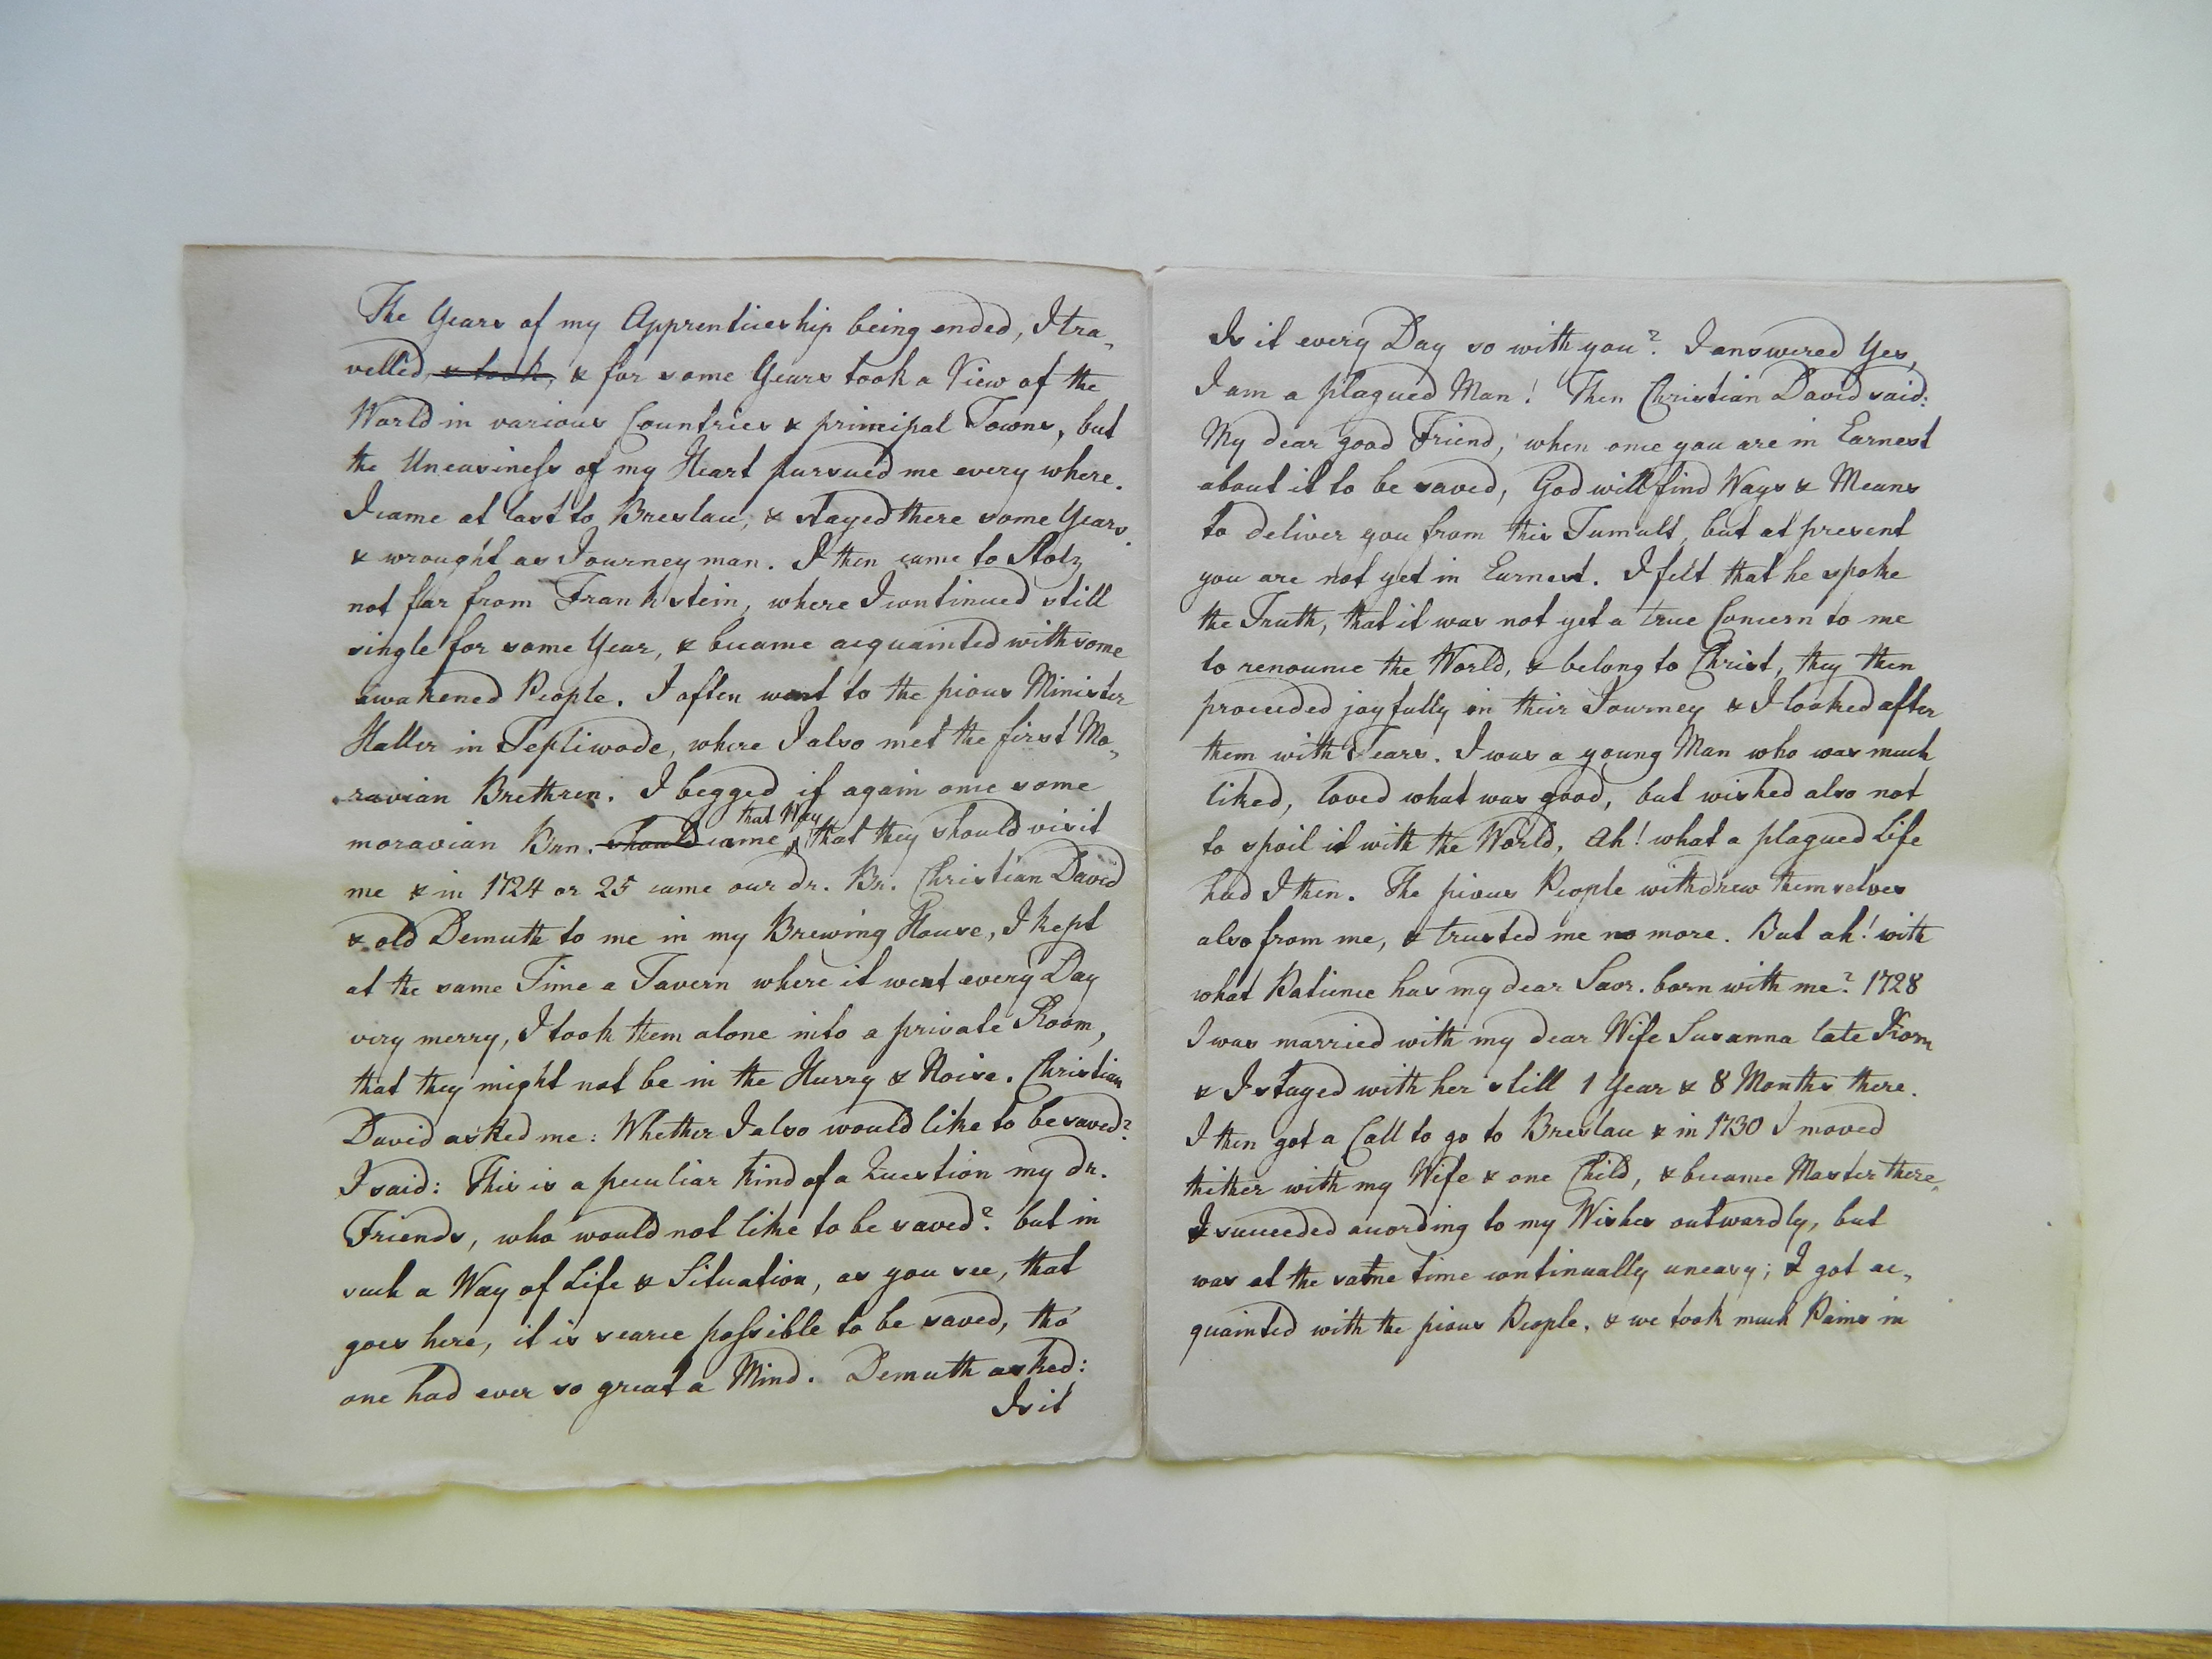 The Years of my Apprenticeship being ended, I tra„
velled, & took, & for some Years took a View of the
World in various Countries & principal Towns, but
the Uneasiness of my Heart pursued me every where.
I came at last to Breslau, & stayed there some Years
& wrought as Journeyman. I then came to Stolz
not far from Frankstein, where I continued still
single for some Year, & became acquainted with some
awakened People. I often went to the pious Minister
Haller in Tepliwode, where I also met the first Mo„
ravian Brethren. I begged if again once some
that Way
moravian Brn. should come, that they should visit
me & in 1724 or 25 came our dr. Br. Christian David
& old Demuth to me in my Brewing House, I kept
at the same Time a Tavern where it went every Day
very merry, I took them alone into a private Room,
that they might not be in the Hurry & Noise. Christian
David asked me: Whether I also would like to be saved?
I said: This is a peculiar kind of a Question my dr.
Friends, who would not like to be saved? but in
such a Way of Life & Situation, as you see, that
goes here, it is scarce possible to be saved, tho'
one had ever so great a Mind. Demuth asked:
Is it
Is it every Day so with you? I answered Yes,
I am a plagued Man! Then Christian David said:
My dear good Friend, when once you are in Earnest
about it to be saved, God will find Ways & Means
to deliver you from this Tumult, but at present
you are not yet in Earnest. I felt that he spoke
the Truth, that it was not yet a true Concern to me
to renounce the World, & belong to Christ, they then
proceeded joyfully on their Journey & I looked after
them with Tears. I was a young Man who was much
liked, loved what was good, but wished also not
to spoil it with the World, Ah! what a plagued Life
had I then. The pious People withdrew themselves
also from me, & trusted me no more. But ah! with
what Patience has my dear Savr. born with me? 1728
I was married with my dear Wife Susanna late Korn
& I stayed with her still 1 Year & 8 Months there.
I then got a Call to go to Breslau & in 1730 I moved
thither with my Wife & one Child, & became Master there,
I succeeded according to my Wishes outwardly, but
was at the same time continually uneasy; I got ac„
quainted with the pious People, & we took much Pains in